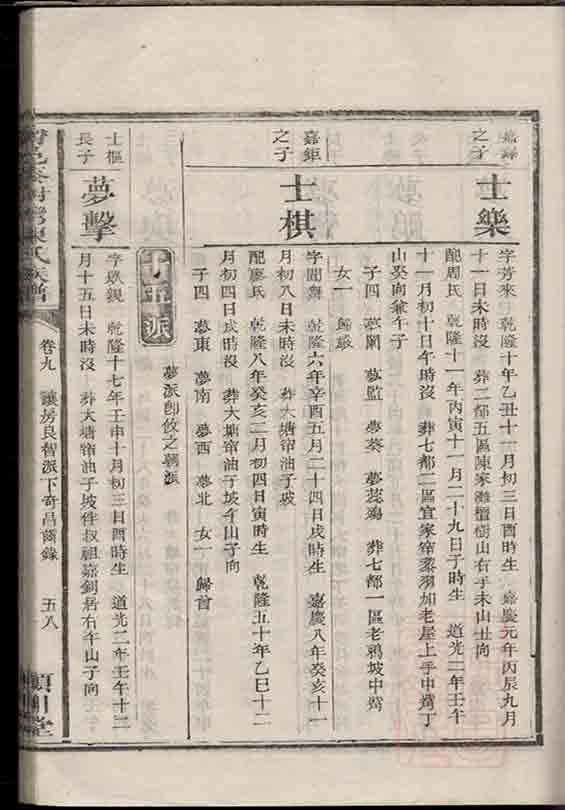 嘉錄之子
士樂
字芳來 乾隆十年乙丑十一月初三日酉時生 嘉慶元年丙辰九月
十一日未時沒 葬二都五區陳家灘檀樹山右手未山丑向
配周氏 乾隆十一年丙寅十一月二十九日子時生 道光二年壬午
十一月初十日午時沒 葬七都二區宜家帘蔡羽加老屋上手中嶌丁
山癸向兼午子
子四 夢關 夢監 夢葵 夢蕊殤 葬七都一區老鴉坡中嶌
女一 歸
嘉鉅之子
士棋
字聞舞 乾隆六年辛酉五月二十四日戌時生 嘉慶八年癸亥十一
月初八日未時沒 葬大塘帘油子坡
配廖氏 乾隆八年癸亥二月初四日寅時生 乾隆五十年乙巳十二
月初四日戌時沒 葬大塘帘油子坡午山子向
子四 夢東 夢南 夢西 夢北 女一 歸首
夢派卽攸之朝派
十五派
士樞長子
夢擊
字啟銳 乾隆十七年壬申十月初三日酉時生 道光二年壬午十二
月十五日未時沒 葬大塘帘油子坡伴叔祖嘉釗居右午山子向
氏族譜
卷九 讓房良智派下奇昌齒錄 五八
潁川堂